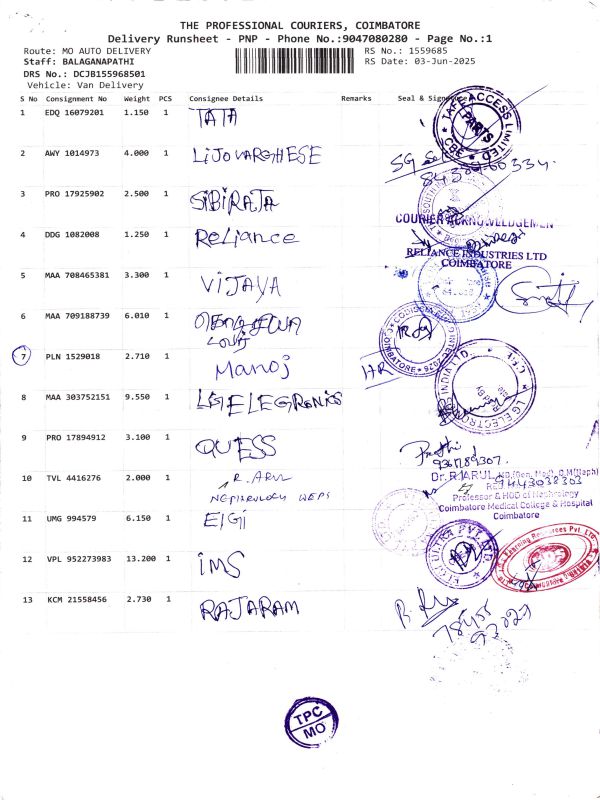 THE PROFESSIONAL COURIERS, COIMBATORE
Delivery Runsheet - PNP - Phone No.:9047080280 - Page No.:1
Route: MO AUTO DELIVERY RS No.: 1559685
Staff: BALAGANAPATHI RS Date: 03-Jun-2025
DRS No.: DCJB155968501
Vehicle: Van Delivery
S No Consignment No Weight PCS Consignee Details Remarks Seal &
1 EDQ 16079201 1.150 1 TATA
TAFE ACCESS LIMITED
PARTS
CBE
2 AWY 1014973 4.000 1 LIJOVARGHESE
3 PRO 17925902 2.500 1 SIBIRATA
COURIER ACKNOWLEDGEMEN
4 DDG 1082008 1.250 1 ReLiance
RELIANCE INDUSTRIES LTD
COIMBATORE
5 MAA 708465381 3.300 1 VIJAYA
6 MAA 709188739 6.010 1
COIMBATORE
7 PLN 1529018 2.710 1 Manoj HR
8 MAA 303752151 9.550 1 LG ELEGRONICS
LG ELECTRONI INDIA LTD.
9 PRO 17894912 3.100 1 QUESS
9367189307
10 TVL 4416276 2.000 1 R. ARUL
NEPHROLOGY WEPS
Dr. R. ARUL
9443038303
Professor & HOD of Nephrology
Coimbatore Medical College & Hospital
Coimbatore
11 UMG 994579 6.150 1 ElGi
12 VPL 952273983 13.200 1 iMS
Learning Resources Pvt. Ltd.
13 KCM 21558456 2.730 1 RAJARAM
TPC
MO